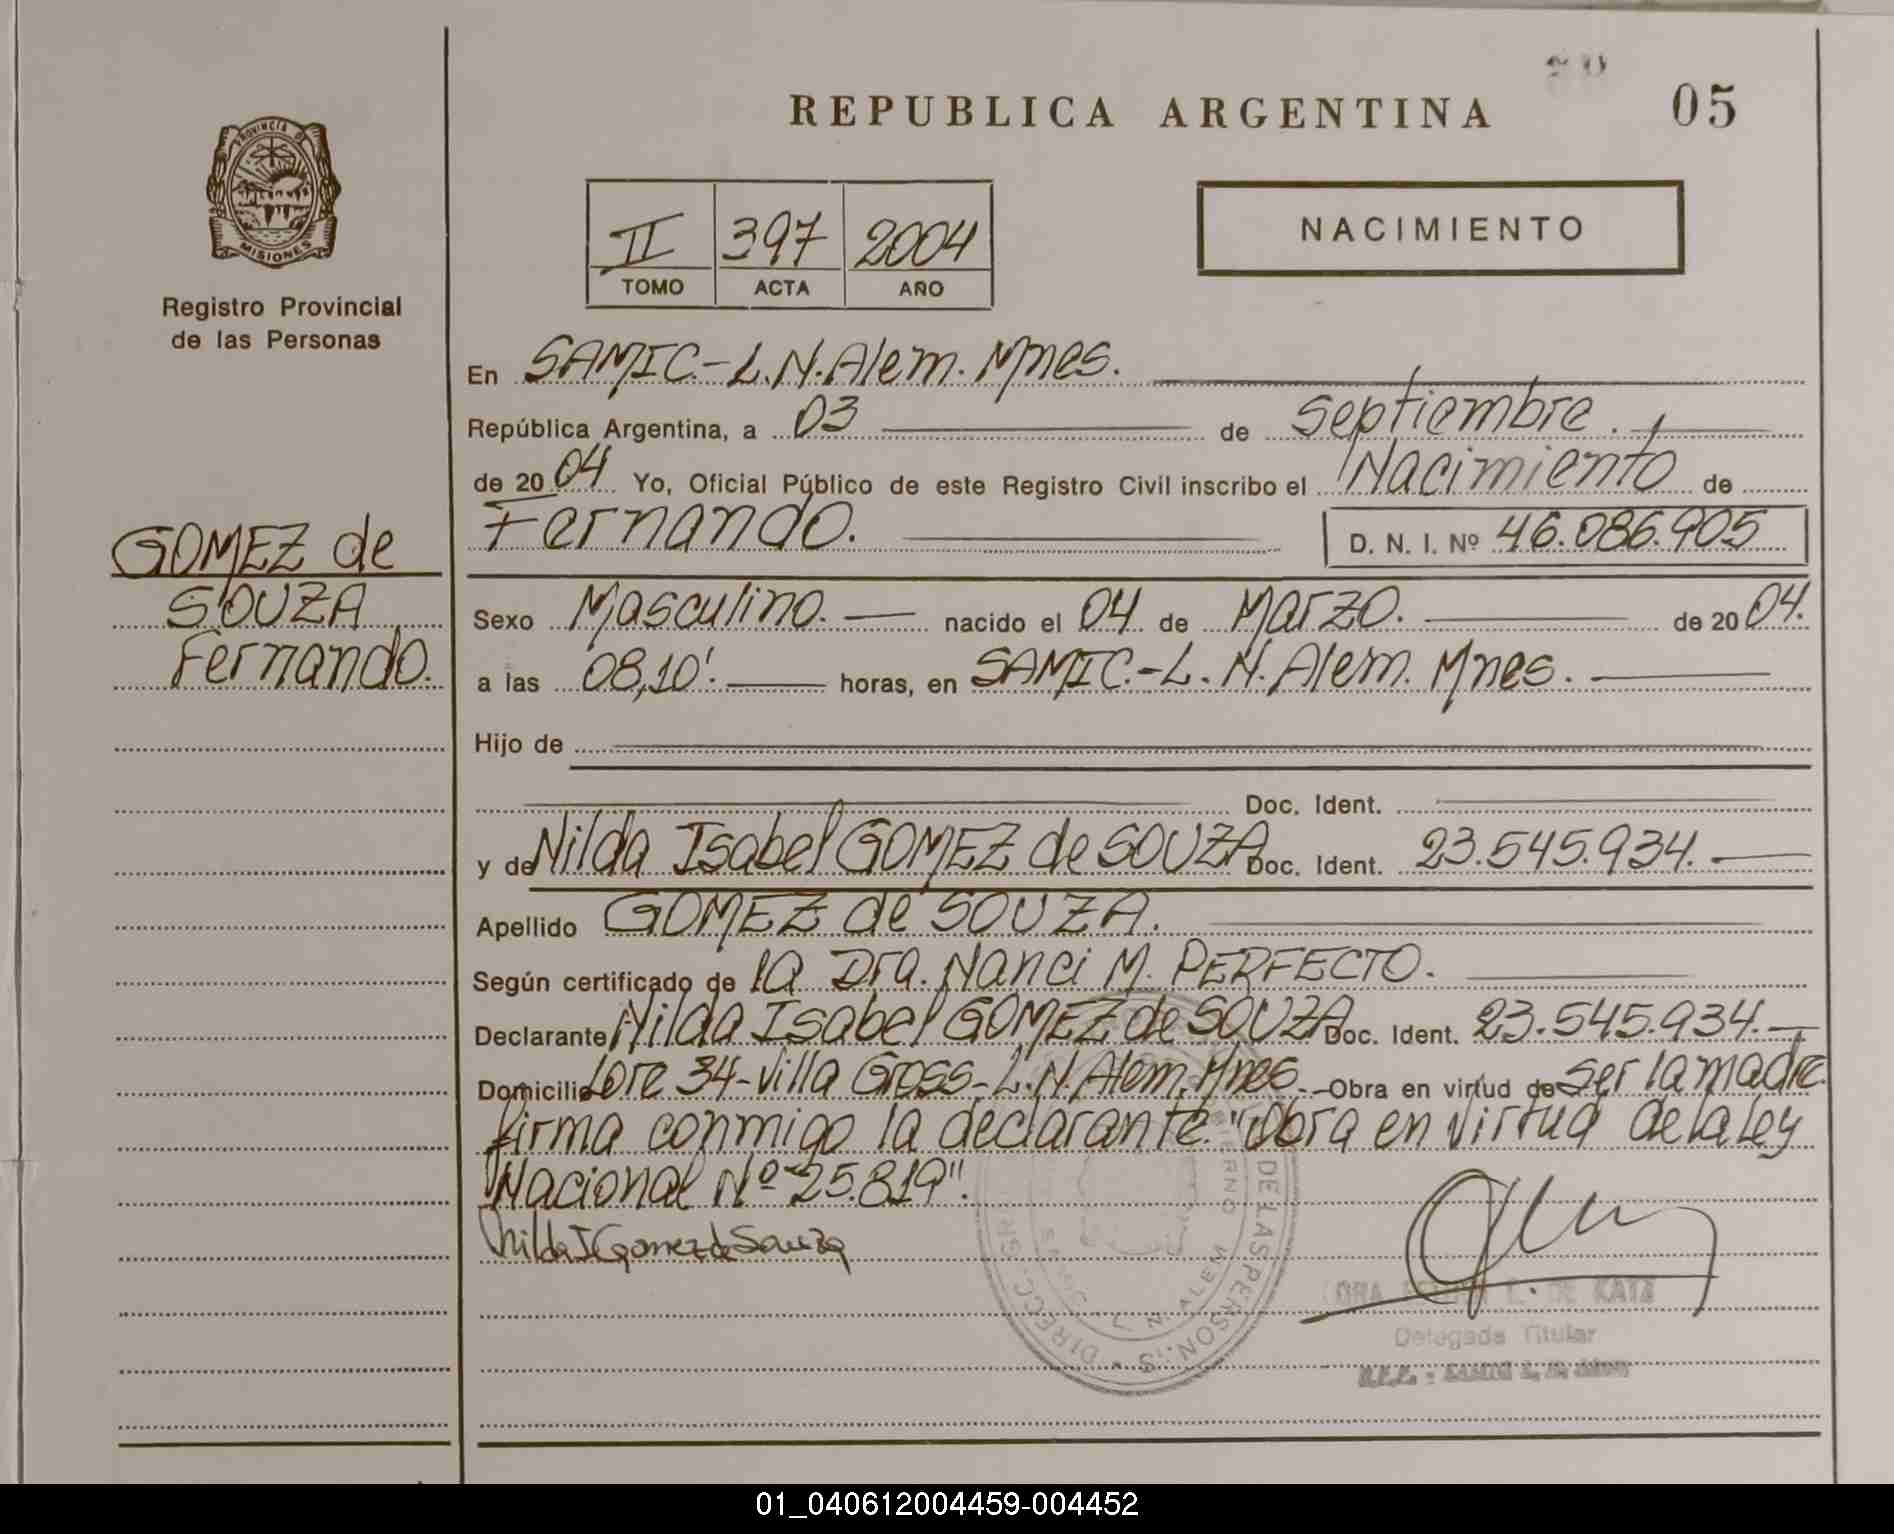 05
REPUBLICA ARGENTINA
PROVINCIA DE
MISIONES
Registro Provincial
de las Personas
II 397 2004
TOMO ACTA AÑO
NACIMIENTO
GOMEZ de
SOUZA
Fernando.
En SAMIC.-L.N.Alem. Mnes.
República Argentina, a 03 de septiembre.
de 2004 Yo, Oficial Público de este Registro Civil inscribo el Nacimiento de
Fernando. D. N. I. Nº 46.086.905
Sexo Masculino. nacido el 04 de Marzo. de 2004.
a las 08,10'. horas, en SAMIC.-L.N.Alem. Mnes.
Hijo de
Doc. Ident.
y de Nilda Isabel GOMEZ de SOUZA Doc. Ident. 23.545.934.
Apellido GOMEZ de SOUZA.
Según certificado de la Dra. Nanci M. PERFECTO.
Declarante Nilda Isabel GOMEZ de SOUZA Doc. Ident. 23.545.934.
Domicilio Lote 34-Villa Gross-L.N.Alem. Mnes. Obra en virtud de ser la madre.
firma conmigo la declarante. "Obra en virtud de la Ley
Nacional Nº 25.819".
Nilda I Gomez de Souza
DE LAS PERSONAS
L. N. ALEM
E. DE KATZ
Delegada Titular
01_040612004459-004452